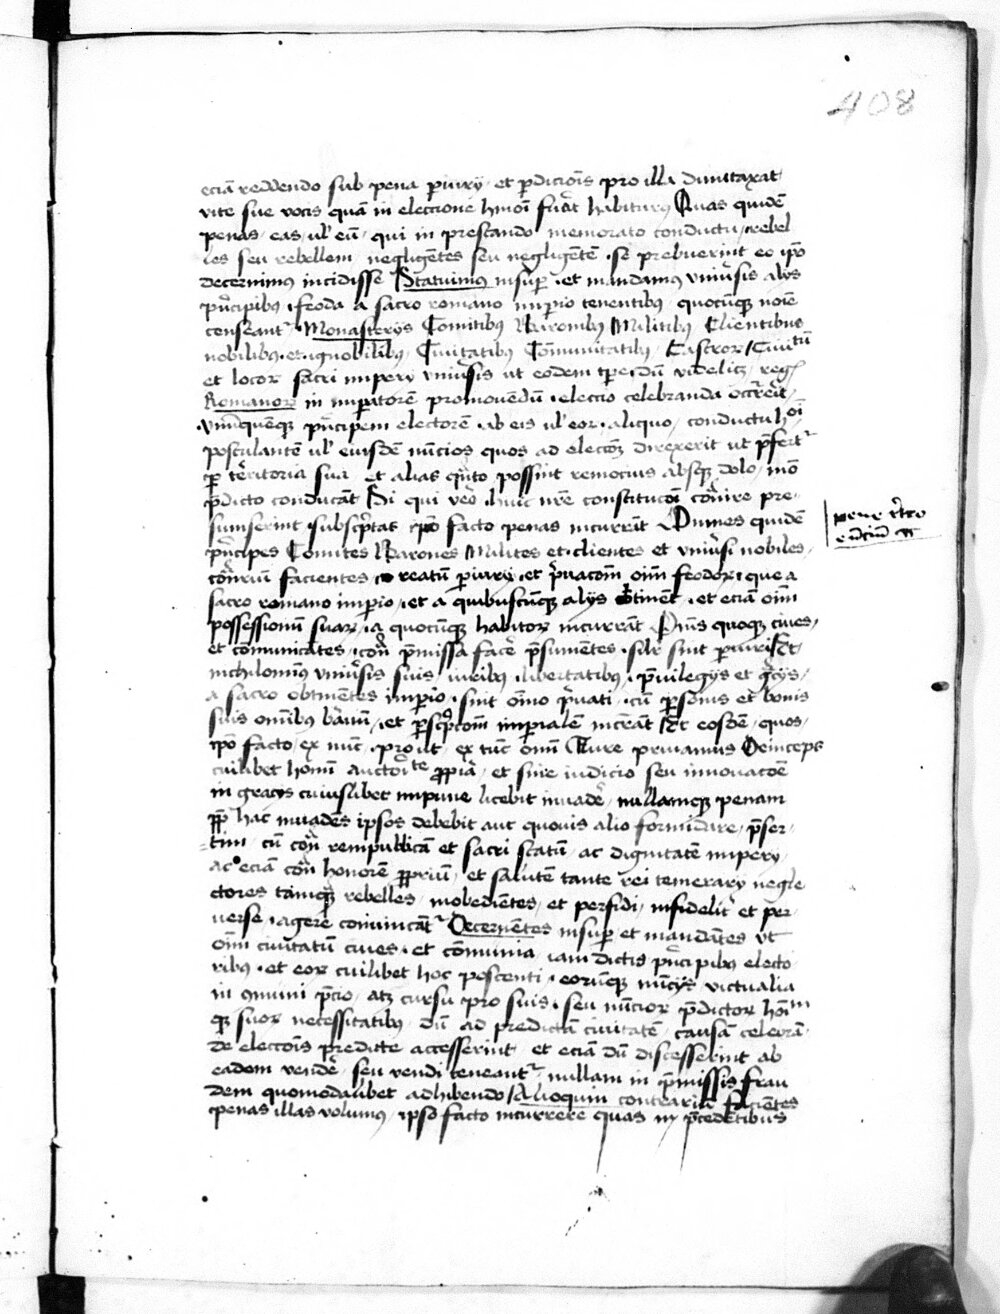 408
eciā reddendo sub pena periurij et perdicōis pro illa dumtaxat
vite sue vocis quam in eleccione hmōi fuat habiturus Quas quidē
penas eas ul' eū qui in prestando memorato conductu rebel
les seu rebellem negligētes seu negligētē se prebuerint eo ipō
decernimus incidisse Statuimus insup et mandamus vniūsis alijs
pncipibus feoda a sacro romano imperio tenentibus quocūqꝫ noīe
censeant Monasterijs Comitibus Baronibus Militibus Clientibus
nobilibus et ignobilibus Ciuitatibus Cōmunitatibus Castror Ciuitatū
et locor sacri imperij vniūsis ut eodem tpe dū videlicet regis
Romanor in imperatorē promouēdū eleccio celebranda occrerit
vnūquēqꝫ pncipem electorē ab eis ul' eor aliquo conductū hōi
postulantē ul' eiusdē nūcios quos ad eleccōꝫ direxerit ut pfert
p territoria sua et alias quto possint remocius absqꝫ dolo mō
pdicto conducāt Si qui vero huic nrē constitucōi cont̄ire pre
sumserint subscptas ipō facto penas incurrāt Omnes quidē
pncipes Comites Barones Milites et clientes et vniūsi nobiles
contriū facientes reatū periurij et puacōm oīm feodor que a
sacro romano imperio et a quibuscūqꝫ alijs obtinent et eciā oīm
possessionū suar a quocūqꝫ habitor incurrāt Oms quoqꝫ ciues
et comunitates cont pmissa facē psumentes silr sint periuri Et
nichilominus vniūsis suis iuribus libertatibus puilegijs et gracijs
a sacro obtinētes imperio sint oīno puati cū personis et bonis
suis omībus bānū et pscpcōm imperialē incurāt Et eosdē quos
ipō facto ex nunc prout ex tūc omī Iure priuamus Deinceps
cuilibet homī auctoritate propria et sine iudicio seu innouacōe
in gracijs cuiuslibet impune licebit inuadē nullamqꝫ penam
ppter hac inuadēs ipsos debebit aut quouis alio formidare pser
tim cū cont rempublicā et sacri statū ac dignitatē imperij
ac eciā cont honorē proprium et salutē tante rei temerarij negle
ctores tāmqꝫ rebelles inobedientes et perfidi infidelit et per
verse agere conuincāt Decernētes insup et mandātes vt
oīm ciuitatū ciues et cōmunia iam dictis pncipibus electo
ribus et eor cuilibet hoc poscenti eorūqꝫ nūcijs victualia
in cōmuni pcio atqꝫ cursu pro suis seu nūcior pdictor hoīm
qꝫ suor necessitatibus dū ad predictā ciuitatē causā celebrā
de eleccōis predicte accesserint et eciā dū discesserint ab
eadem vendē seu vendi teneant nullam in pmissis frau
dem quomodolibet adhibendo Alioquin contrariū facientes
penas illas volumus ipso facto incurrere quas in pcedētibus